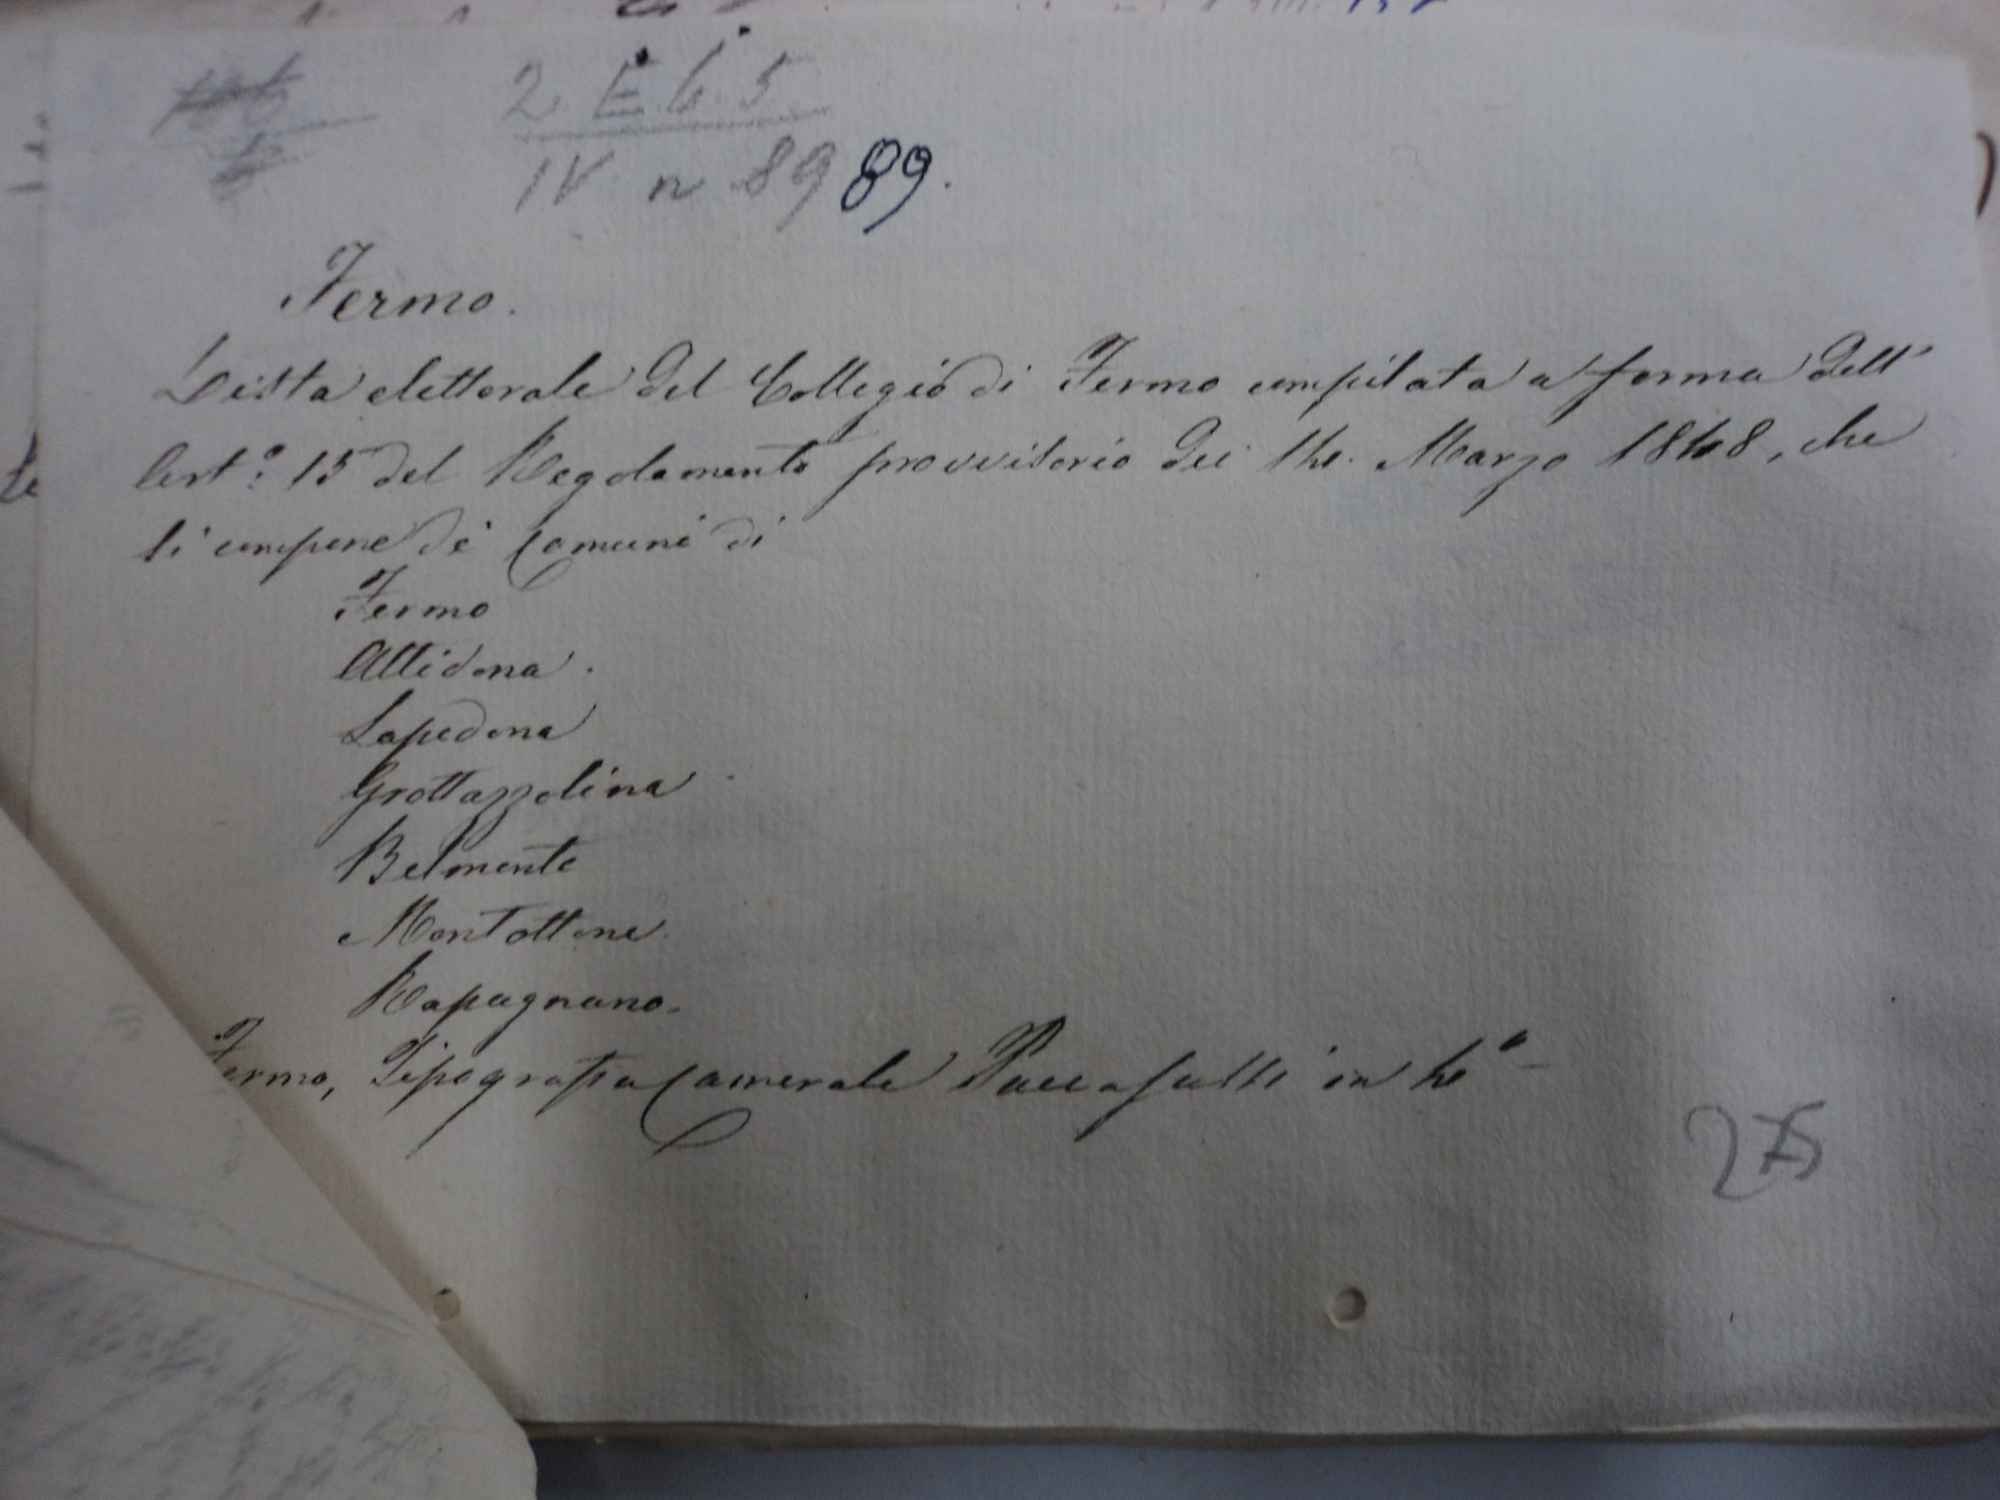 2 E 6 5
IV n 89 89.
Fermo.
Lista elettorale del Collegio di Fermo compilata a forma dell'
Art.° 15 del Regolamento provvisorio dei 14. Marzo 1848, che
si compone de' Comuni di
Fermo
Altidona.
Lapedona
Grottazzolina
Belmonte
Montottone
Rapagnano.
Fermo, Tipografia Camerale Paccasassi in 4°
275